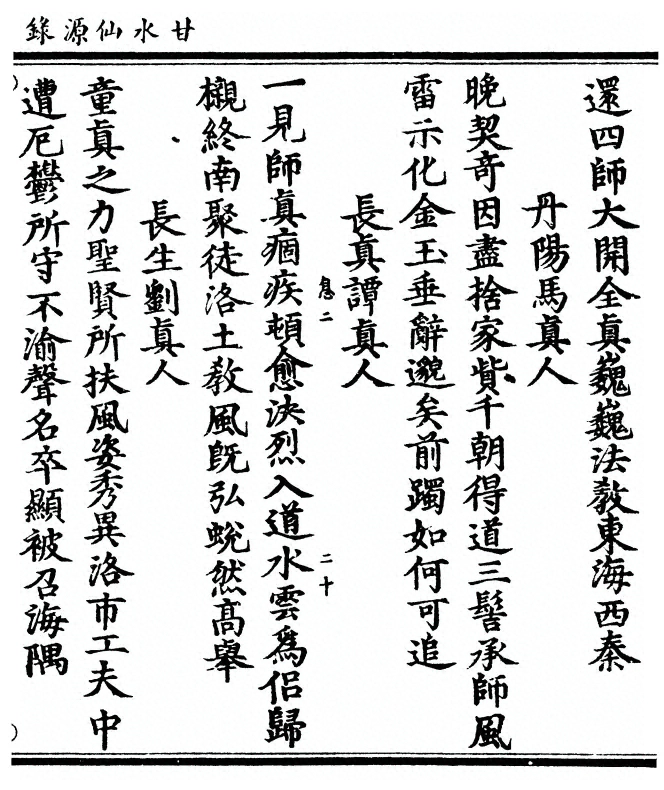 甘水仙源錄
還四師大開全真巍巍法教東海西秦
丹陽馬真人
晚契奇因盡捨家貲千朝得道三髻承師風
雷示化金玉垂辭邈矣前躅如何可追
長真譚真人
一見師真痼疾頓愈決烈入道水雲爲侶歸
息二
二十
櫬終南聚徒洛土教風既弘蛻然高舉
長生劉真人
童真之力聖賢所扶風姿秀異洛市工夫中
遭厄鬱所守不渝聲名卒顯被召海隅